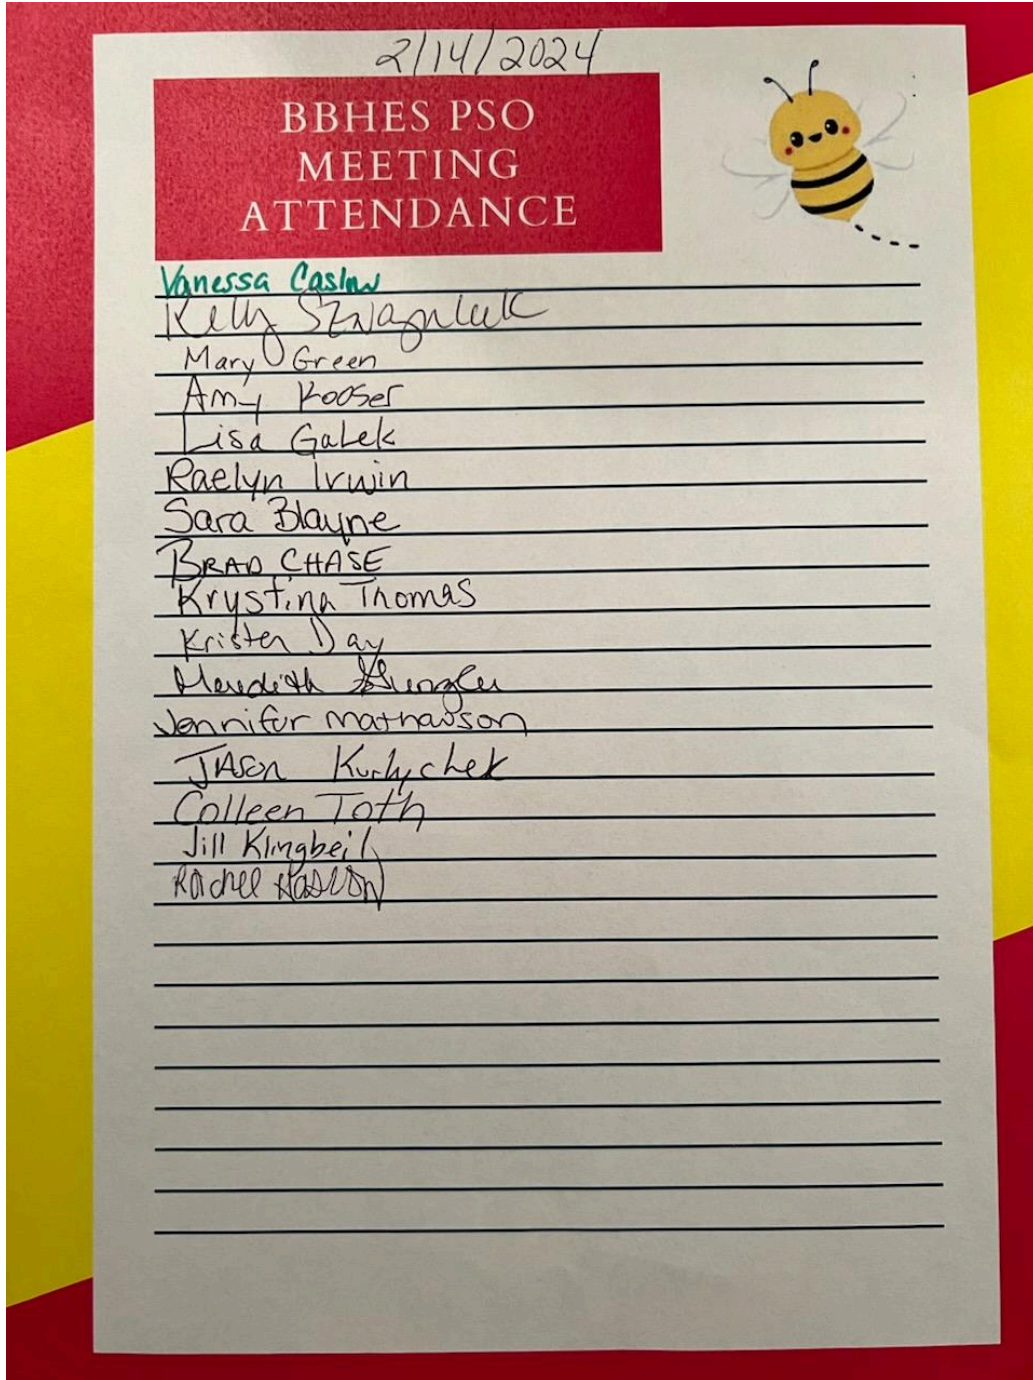 2/14/2024
BBHES PSO
MEETING
ATTENDANCE
Vanessa Caslow
Kelly
Mary Green
Amy Kooser
Lisa Galek
Raelyn Irwin
Sara Blayne
BRAD CHASE
Krystina Thomas
Kristen Day
Meredith
Jennifer Mathewson
JASon Kurlychek
Colleen Toth
Jill Klingbeil
Rachel